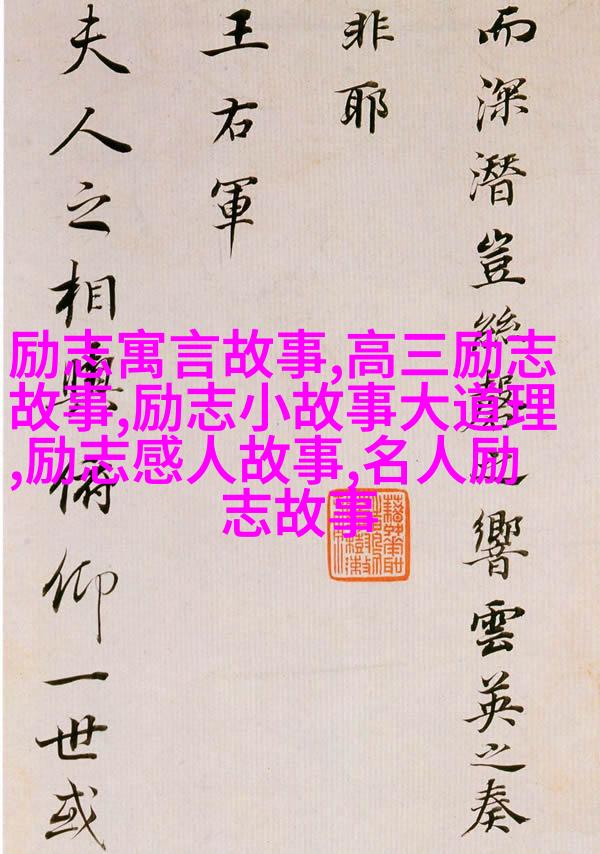 而深潛豈絲聲之響雲英之奏
非耶
王右軍
夫人之相與俯仰一世或
励志寓言故事,高三励志
故事,励志小故事大道理
,励志感人故事,名人励
志故事